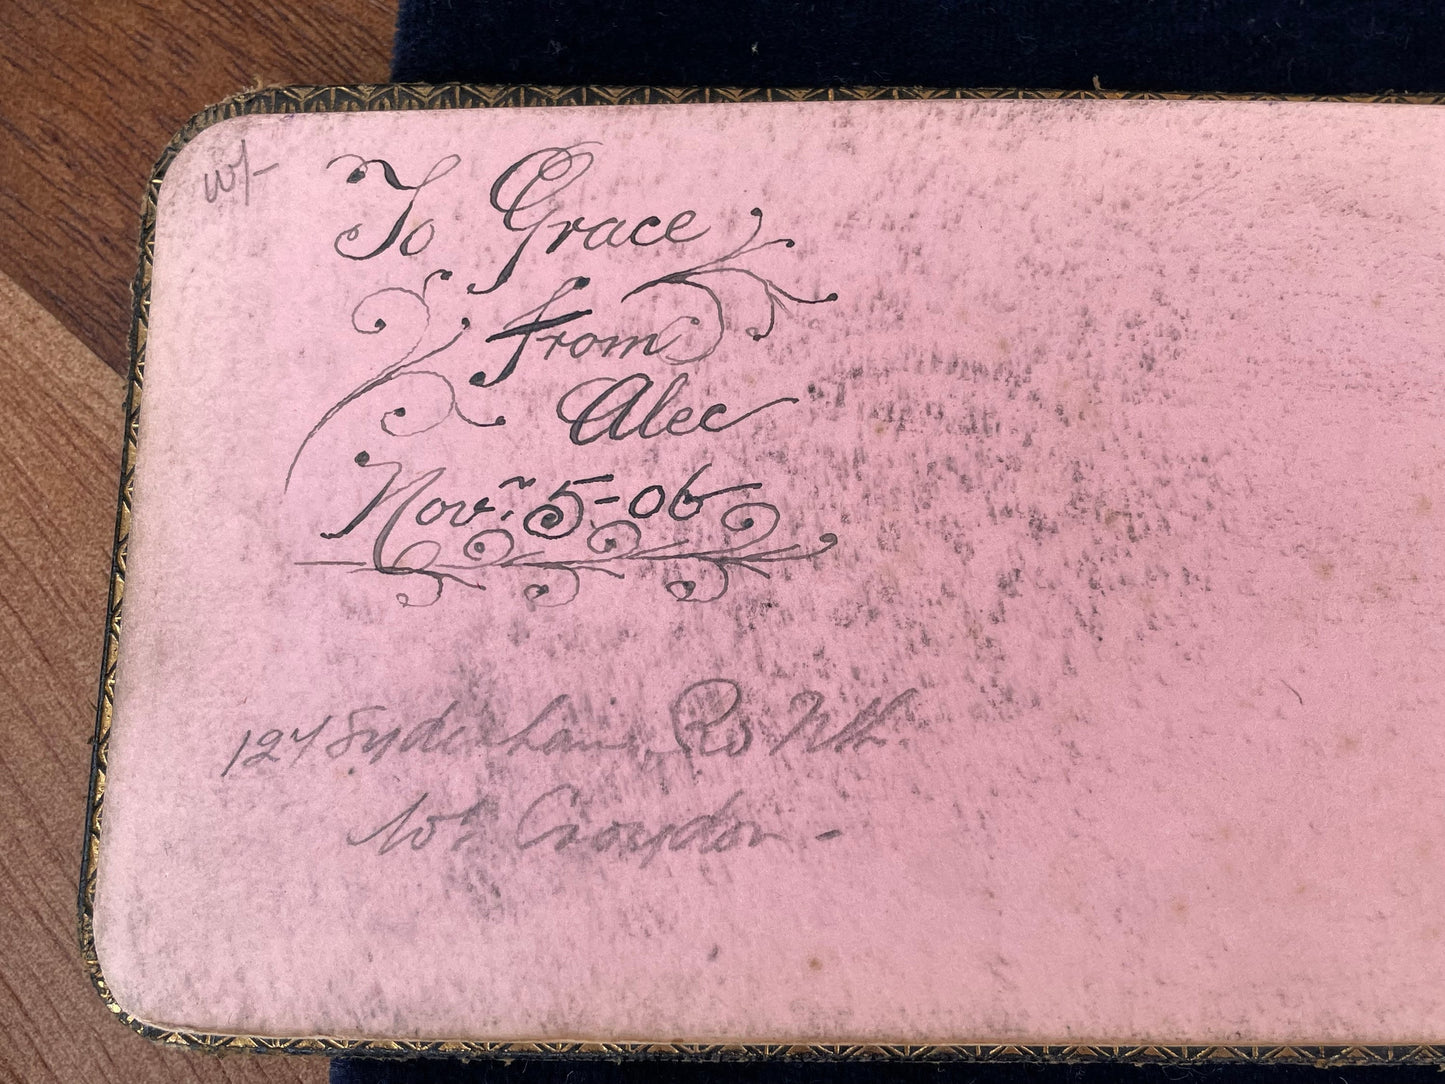 To Grace
from
Alec
Novr. 5-06
127 Sydenham Rd Nth.
Wst Croydon -